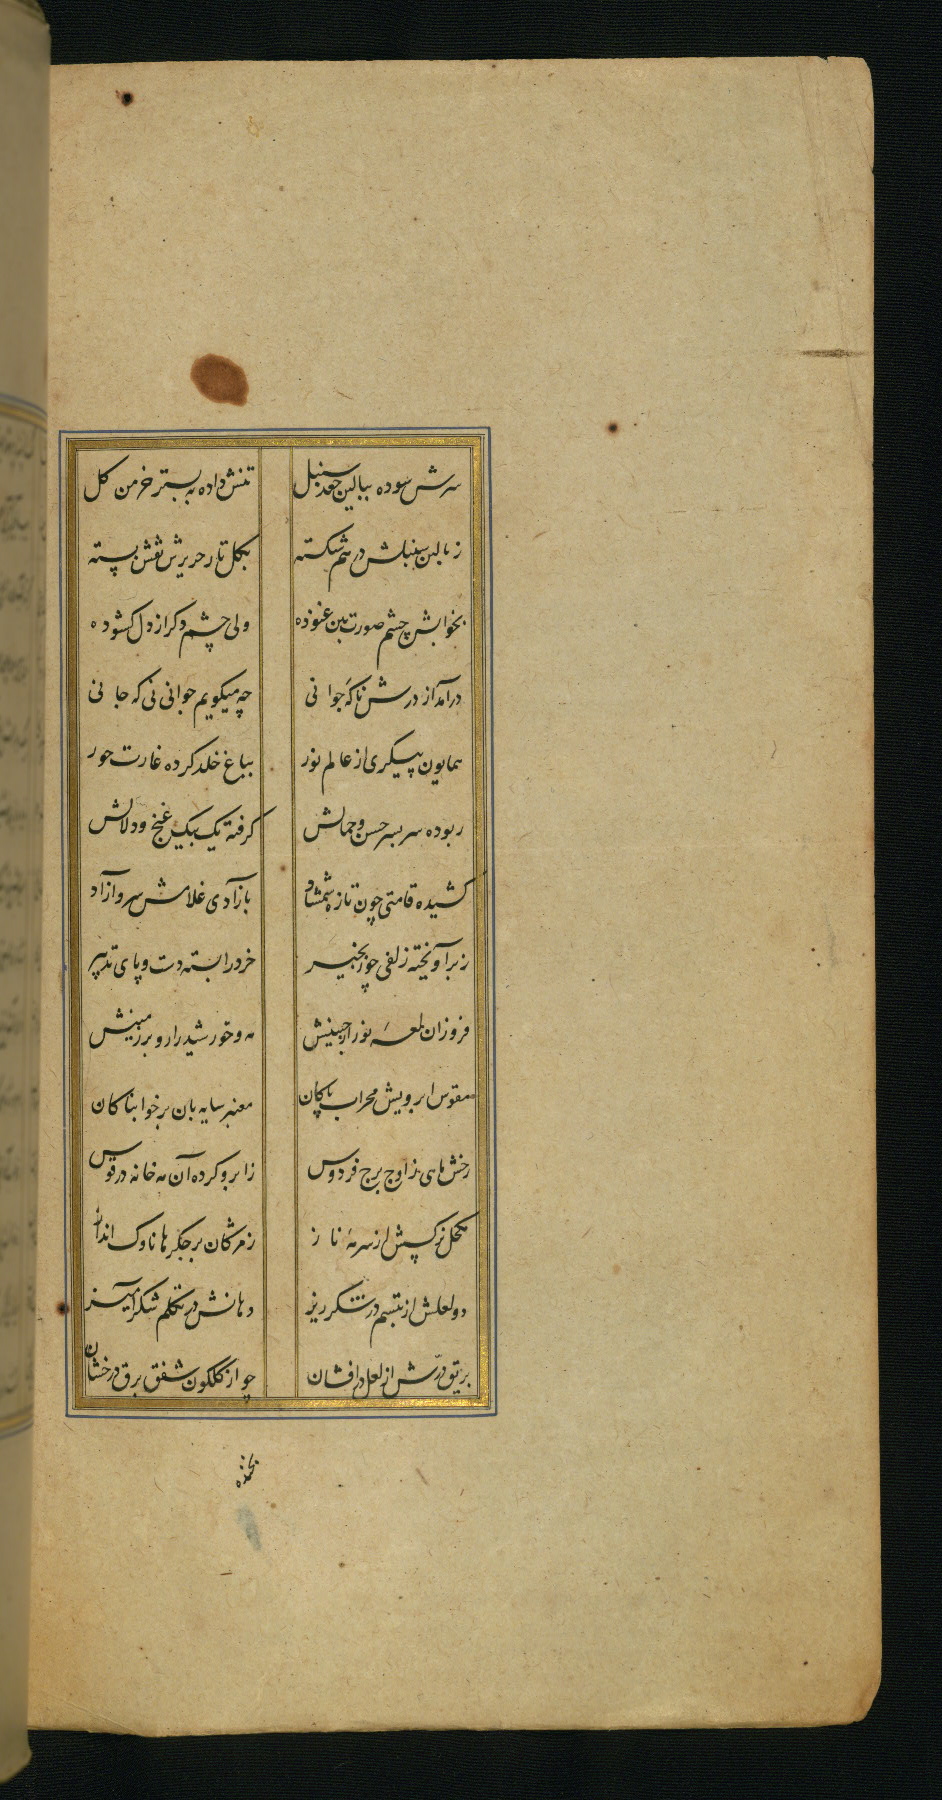 سرش سوده ببالین جعد سنبل تنش داده به بستر خرمن کل
زبالین سنبلش در هم شکسته بکل تار حریرش نقش بسته
بخوابش چشم صورت بین غنوده ولی چشم دکر از دل کشوده
درامد از درش ناکه جوانی چه میکویم جوانی نی که جانی
همایون پیکری از عالم نور بباغ خلد کرده غارت حور
ربوده سر بسر حسن و جمالش کرفته یک بیک غنج و دلالش
کشیده قامتی چون تازه شمشاد بازآدی غلامش سرو ازآد
زبر آویخته زلفی چو زنجیر خرد را بسته دست و پای تدبیر
فروزان لمعهٔ نور از جبینش مه و خورشید را رو بر زمینش
مقوس ابرویش محراب پاکان معنبر سایه بان بر خوابناکان
رخش ماهی ز اوج برج فردوس ز ابرو کرده آن مه خانه در قوس
مکحل نرکسش از سرمهٔ ناز ز مژکان بر جکرها ناوک انداز
دو لعلش از تبسم در شکرریز دهانش در تکلم شکر آمیز
بریق درّش از لعل در افشان چو از کلکون شفق برق درخشان
بخنده